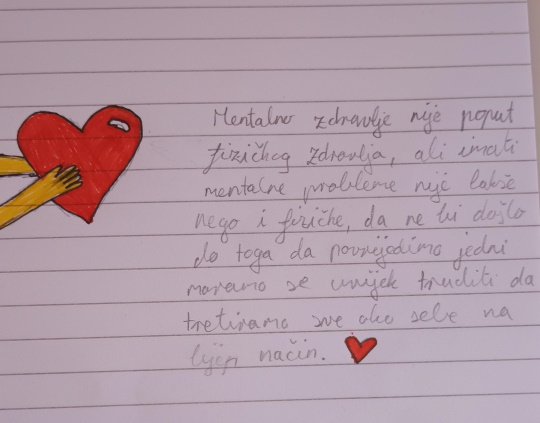 Mentalno zdravlje nije poput
fizičkog zdravlja, ali imati
mentalne probleme nije lakše
nego i fizičke, da ne bi došlo
do toga da povrijedimo jedni
moramo se uvijek truditi da
tretiramo sve oko sebe na
lijep način.